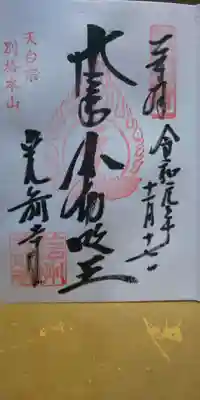 奉拝 令和元年十一月十七日
大聖不動明王
天台宗
別格本山
光前寺